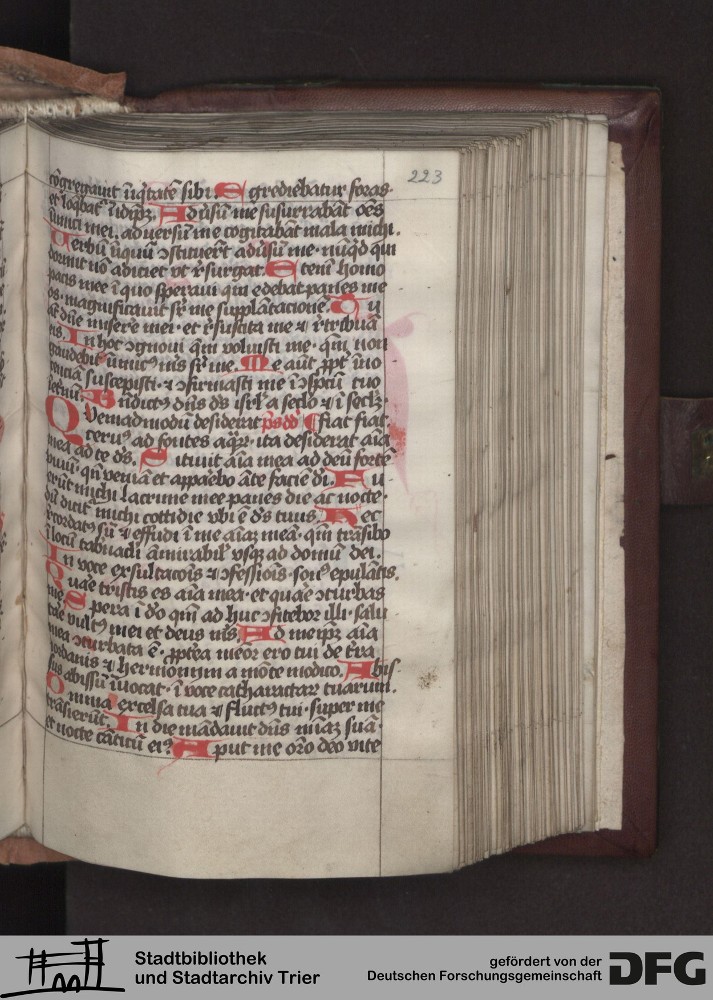 223
cōgregauit īiq̄tatē sibi. Egrediebatur foras.
et loq̄bat᷑ īidip̄ꝫ. Aduersū me susurrabāt oēs
inimici mei. aduersū me cogitabāt mala michi.
Uerbū iniquū ꝯstituerūt aduersū me. nūqd qui
dormit nō adiciet vt resurgat. Etenī homo
pacis mee ī quo speraui qui edebat panes me
os. magnificauit sr̄ me supplātacionē. Tu
aūt dn̄e miserē mei. et resuscita me ⁊ retribuā
eis. In hoc ꝯgnoui qm̄ voluisti me. qm̄ non
gaudebit inimicꝰ mꝰs sr̄ me. Me aūt ꝓpt īno
cenciā suscepisti. ⁊ ꝯfirmasti me ī ꝯspectu tuo
ī eternū. Bn̄dictꝰ dn̄s ds̄ isrl̄ a seclo ⁊ ī seclꝫ.
Quemadmodū desiderat ps dd̄ fiat fiat.
ceruꝰ ad fontes aq̄ꝝ. ita desiderat aīa
mea ad te ds̄. Sitiuit aīa mea ad deū fontē
viuū. qn̄ veniā et apparebo āte faciē dī. Fu
erūt michi lacrime mee panes die ac nocte.
dū dicit᷑ michi cottidie vbi ē ds̄ tuus. Hec
recordatꝰ sū ⁊ effudi ī me aīaꝫ meā. qm̄ trāsibo
ī locū tabnaclī āmirabil᷑ vsqꝫ ad domū dei.
In voce exsultacōis ⁊ ꝯfessiōis. sonꝰ epulātis.
Quae tristis es aīa mea. et quae ꝯturbas
me. Spera ī dō qm̄ ad huc ꝯfitebor illi. salu
tae vultꝰ mei et deus mꝰs. Ad meip̄ꝫ aīa
mea ꝯturbata ē. ꝓpt̄ea meōr ero tui de t̄ra
iordanis ⁊ hermonijm a mōte modico. Abis
sus abissū īuocat. ī voce catharactaꝝ tuarum.
Omnia excelsa tua ⁊ fluctꝰ tui. super me
trāsierūt. In die mādauit dn̄s mīaꝫ suā.
et nocte cāticū eiꝰ. Aput me orō deo vite
Stadtbibliothek
und Stadtarchiv Trier
gefördert von der
Deutschen Forschungsgemeinschaft
DFG